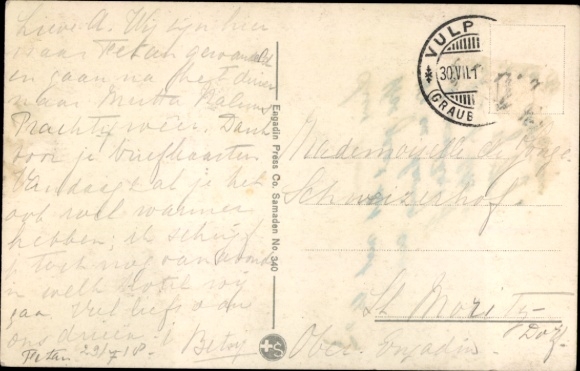 Lieve A. Wij zijn hier
naar Fetan gewandeld
en gaan na het diner
naar Motta Naluns
Prachtig weer. Dank
voor je briefkaarten
Vandaag zal je het
ook wel warmer
hebben; ik schrijf
je toch nog vanavond
in welk hotel wij
gaan. Veel liefs van
ons drieën. Betsy
Fetan 29/7 18.
Engadin Press Co. Samaden No. 340
VULP
30.VII.1
GRAUB
Mademoiselle A.
Schweizerhof.
St Moritz-
Dorf.
Ober. Engadin.